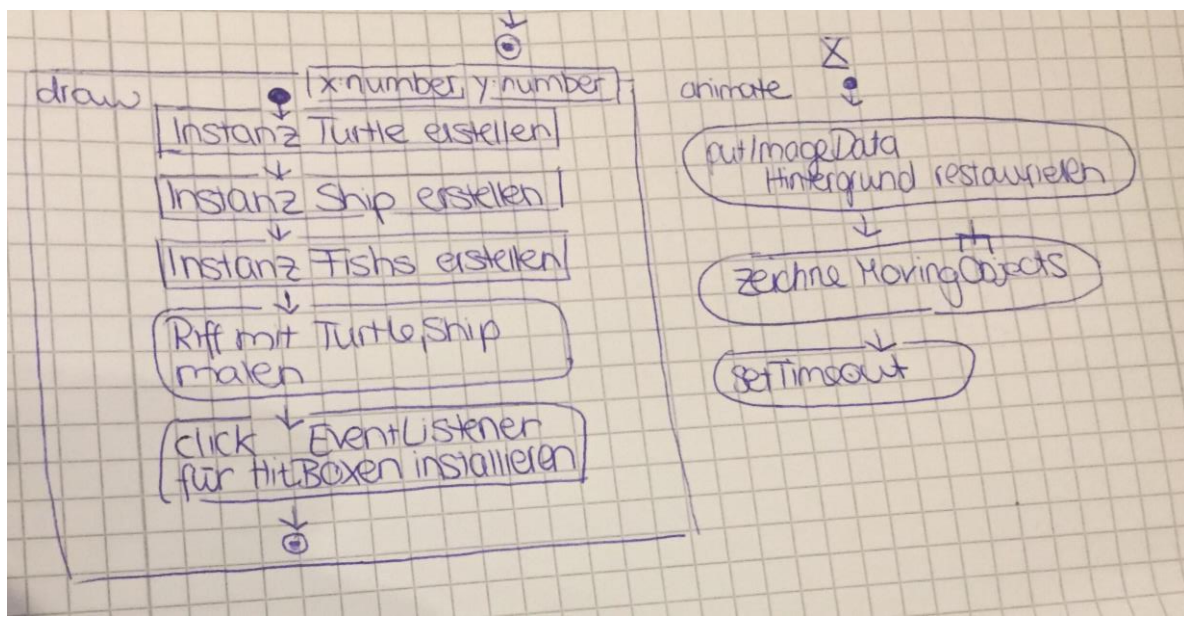 draw
x:number, y:number
Instanz Turtle erstellen
Instanz Ship erstellen
Instanz Fishs erstellen
Riff mit Turtle, Ship
malen
click EventListener
für HitBoxen installieren
animate
putImageData
Hintergrund restaurieren
zeichne MovingObjects
setTimeout